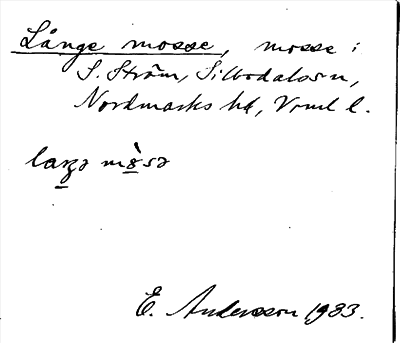 Långe mosse, mosse i
S. Ström, Silbodals sn,
Nordmarks hd, Vrml l.
laŋə mòsə
E. Andersson 1933.